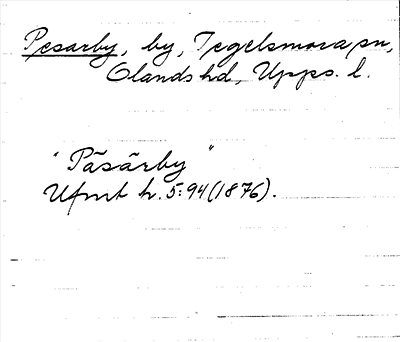 Pesarby, by, Tegelsmora sn,
Olands hd, Upps. l.
"Påsårby"
Ufmt h. 5:94 (1876).